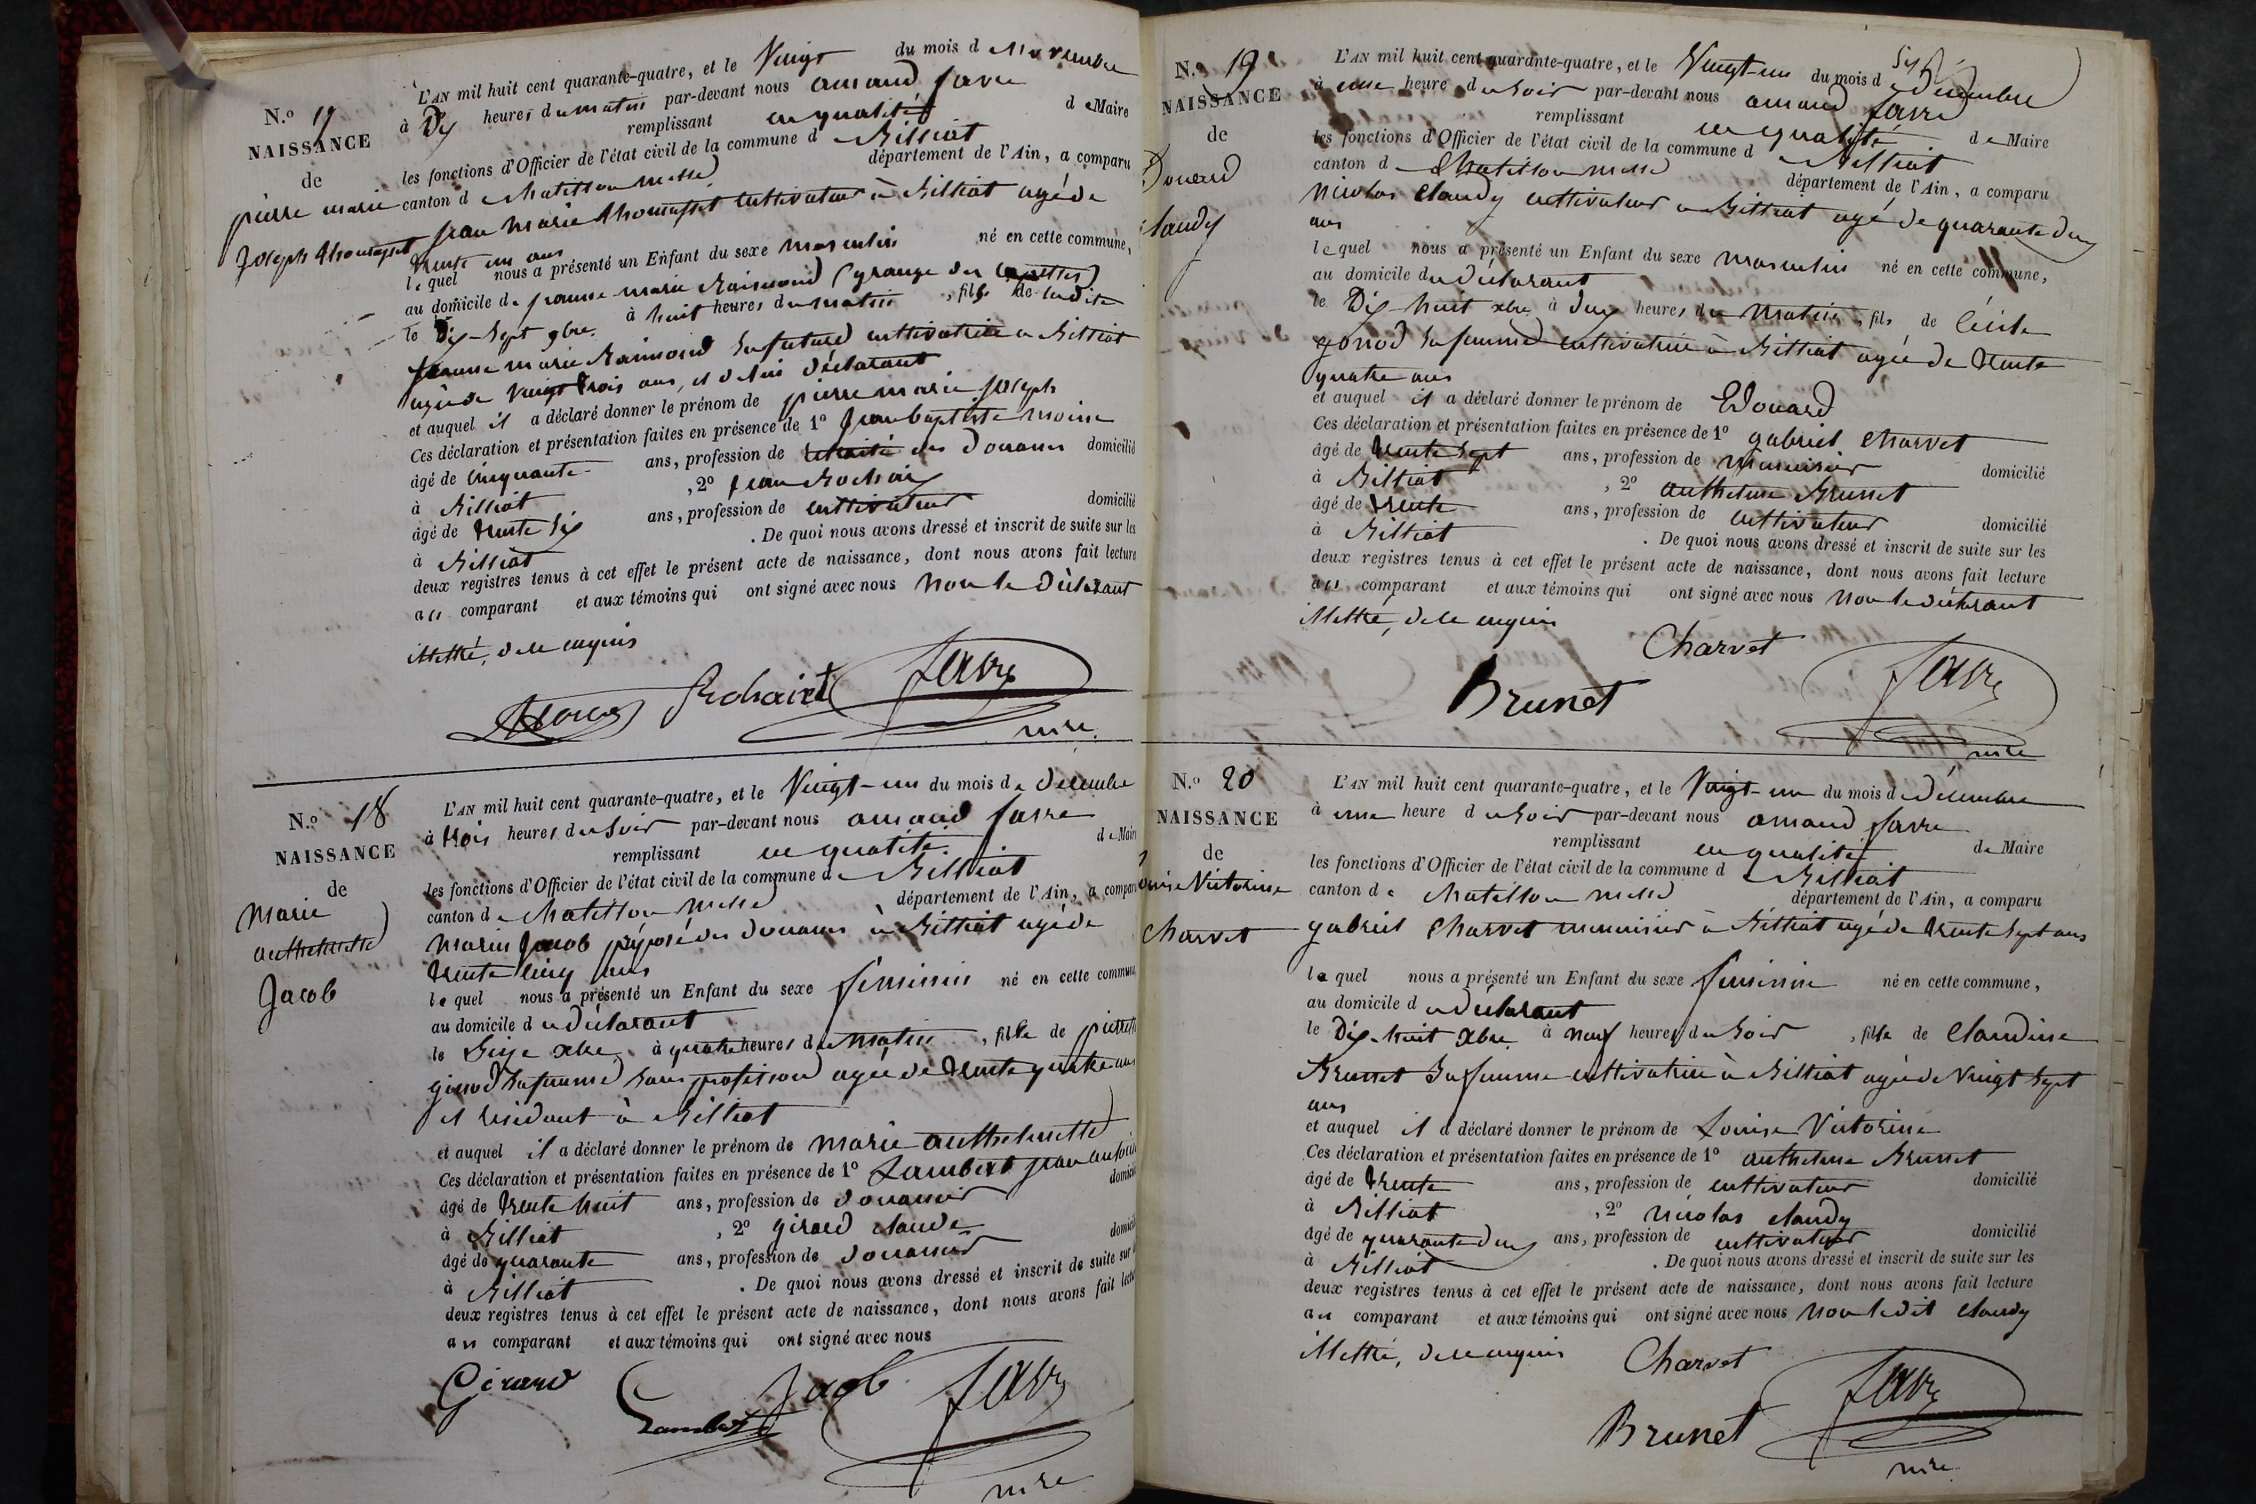 N.o 17
NAISSANCE
de
pierre marie
Joseph thomasset
L'AN mil huit cent quarante-quatre, et le Vingt du mois d e Novembre
à Dix heures du matin par-devant nous amand favre
remplissant en qualité de Maire
les fonctions d'Officier de l'état civil de la commune de Billiat
canton de Chatillon michel département de l'Ain, a comparu
jean marie thomasset cultivateur à Billiat agé de
trente un ans
lequel nous a présenté un Enfant du sexe masculin né en cette commune,
au domicile de jeanne marie Raimond (grange des
le Dix-Sept 9bre à huit heures du matin, fils de ladite
jeanne marie Raimond Sa future cultivatrice à Billiat
agée de Vingt trois ans, et de lui déclarant
et auquel il a déclaré donner le prénom de pierre marie joseph
Ces déclaration et présentation faites en présence de 1o jean baptiste moine
âgé de Cinquante ans, profession de retraité des Douanes domicilié
à Billiat, 2o jean Rochaix
âgé de trente Six ans, profession de cultivateur domicilié
à Billiat. De quoi nous avons dressé et inscrit de suite sur les
deux registres tenus à cet effet le présent acte de naissance, dont nous avons fait lecture
au comparant et aux témoins qui ont signé avec nous Non le déclarant
illettré, de ce enquis
Rochaix favre
mire
N.o 18
NAISSANCE
de
Marie
anthelmette
Jacob
L'AN mil huit cent quarante-quatre, et le Vingt-un du mois de Décembre
à trois heures du Soir par-devant nous amand favre
remplissant en qualité de Maire
les fonctions d'Officier de l'état civil de la commune de Billiat
canton de Chatillon michel département de l'Ain, a comparu
Marin Jacob préposé des douanes à Billiat agé de
trente cinq ans
lequel nous a présenté un Enfant du sexe féminin né en cette commune
au domicile du déclarant
le Seize xbre à quatre heures du matin, fille de pierrette
ginod Sa femme Sans profession agée de trente quatre ans
et résidant à Billiat
et auquel il a déclaré donner le prénom de marie anthelmette
Ces déclaration et présentation faites en présence de 1o Lambert jean antoine
âgé de trente huit ans, profession de douanier domicilié
à Billiat, 2o girard claude
âgé de quarante ans, profession de douanier domicilié
à Billiat. De quoi nous avons dressé et inscrit de suite sur
deux registres tenus à cet effet le présent acte de naissance, dont nous avons fait lecture
au comparant et aux témoins qui ont signé avec nous
Girard Jacob favre
Lambert
mire
N.o 19
NAISSANCE
de
Douard
Claudy
L'AN mil huit cent quarante-quatre, et le Vingt-un du mois de Décembre
à une heure du Soir par-devant nous amand favre
remplissant en qualité de Maire
les fonctions d'Officier de l'état civil de la commune de Billiat
canton de Chatillon michel département de l'Ain, a comparu
Nicolas Claudy cultivateur à Billiat agé de quarante deux
ans
lequel nous a présenté un Enfant du sexe masculin né en cette commune,
au domicile du déclarant
le Dix-huit xbre à deux heures du Matin, fils de Cécile
gonod Sa femme cultivatrice à Billiat agée de trente
quatre ans
et auquel il a déclaré donner le prénom de Edouard
Ces déclaration et présentation faites en présence de 1o gabriel Charvet
âgé de trente Sept ans, profession de menuisier domicilié
à Billiat, 2o anthelme Brunet
âgé de trente ans, profession de cultivateur domicilié
à Billiat. De quoi nous avons dressé et inscrit de suite sur les
deux registres tenus à cet effet le présent acte de naissance, dont nous avons fait lecture
au comparant et aux témoins qui ont signé avec nous Non le déclarant
illettré, de ce enquis
Charvet
Brunet favre
mire
N.o 20
NAISSANCE
de
Louise Victorine
Charvet
L'AN mil huit cent quarante-quatre, et le Vingt-un du mois de Décembre
à une heure du Soir par-devant nous amand favre
remplissant en qualité de Maire
les fonctions d'Officier de l'état civil de la commune de Billiat
canton de Chatillon michel département de l'Ain, a comparu
gabriel Charvet menuisier à Billiat agé de trente Sept ans
lequel nous a présenté un Enfant du sexe féminin né en cette commune,
au domicile du déclarant
le Dix-huit xbre à neuf heures du Soir, fille de Claudine
Brunet Sa femme cultivatrice à Billiat agée de Vingt Sept
ans
et auquel il a déclaré donner le prénom de Louise Victorine
Ces déclaration et présentation faites en présence de 1o anthelme Brunet
âgé de trente ans, profession de cultivateur domicilié
à Billiat, 2o nicolas Claudy
âgé de quarante deux ans, profession de cultivateur domicilié
à Billiat. De quoi nous avons dressé et inscrit de suite sur les
deux registres tenus à cet effet le présent acte de naissance, dont nous avons fait lecture
au comparant et aux témoins qui ont signé avec nous Non le dit Claudy
illettré, de ce enquis
Charvet
Brunet favre
mire